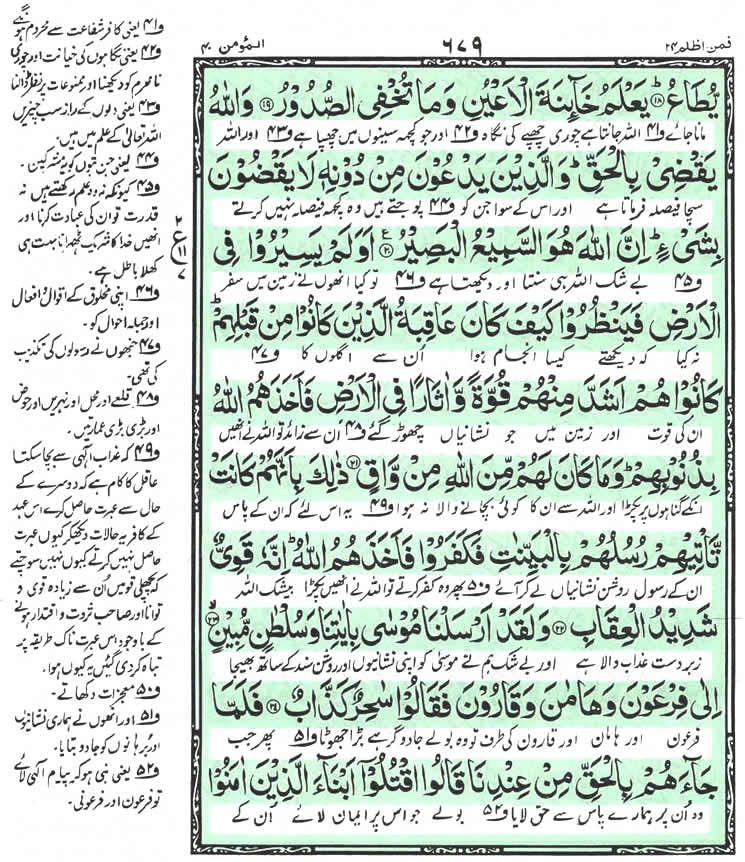 فمن اظلم ۲۴
۶۷۹
المؤمن ۴۰
يُّطَاعُ ؕ﴿۱۸﴾ يَعْلَمُ خَآئِنَةَ الْاَعْيُنِ وَمَا تُخْفِى الصُّدُوْرُ ﴿۱۹﴾ وَاللّٰهُ
مانا جائے و۴۱ اللہ جانتا ہے چوری چھپے کی نگاہ و۴۲ اور جو کچھ سینوں میں چھپا ہے و۴۳ اور اللہ
يَقْضِىْ بِالْحَقِّ ؕ وَالَّذِيْنَ يَدْعُوْنَ مِنْ دُوْنِهٖ لَا يَقْضُوْنَ
سچا فیصلہ فرماتا ہے اور اس کے سوا جن کو و۴۴ پوجتے ہیں وہ کچھ فیصلہ نہیں کرتے
بِشَىْءٍ ؕ اِنَّ اللّٰهَ هُوَ السَّمِيْعُ الْبَصِيْرُ ﴿۲۰﴾ اَوَلَمْ يَسِيْرُوْا فِى
و۴۵ بے شک اللہ ہی سنتا اور دیکھتا ہے و۴۶ تو کیا انھوں نے زمین میں سفر
الْاَرْضِ فَيَنْظُرُوْا كَيْفَ كَانَ عَاقِبَةُ الَّذِيْنَ كَانُوْا مِنْ قَبْلِهِمْ ؕ
نہ کیا کہ دیکھتے کیسا انجام ہوا اُن سے اگلوں کا و۴۷
كَانُوْا هُمْ اَشَدَّ مِنْهُمْ قُوَّةً وَّاٰثَارًا فِى الْاَرْضِ فَاَخَذَهُمُ اللّٰهُ
ان کی قوت اور زمین میں جو نشانیاں چھوڑ گئے و۴۸ اُن سے زائد تو اللہ نے انھیں
بِذُنُوْبِهِمْ ؕ وَمَا كَانَ لَهُمْ مِّنَ اللّٰهِ مِنْ وَّاقٍ ﴿۲۱﴾ ذٰلِكَ بِاَنَّهُمْ كَانَتْ
انکے گناہوں پر پکڑا اور اللہ سے ان کا کوئی بچانے والا نہ ہوا و۴۹ یہ اس لئے کہ ان کے پاس
تَّاْتِيْهِمْ رُسُلُهُمْ بِالْبَيِّنٰتِ فَكَفَرُوْا فَاَخَذَهُمُ اللّٰهُ ؕ اِنَّهٗ قَوِىٌّ
ان کے رسول روشن نشانیاں لے کر آئے و۵۰ پھر وہ کفر کرتے تو اللہ نے انھیں پکڑا بیشک اللہ
شَدِيْدُ الْعِقَابِ ﴿۲۲﴾ وَلَقَدْ اَرْسَلْنَا مُوْسٰى بِاٰيٰتِنَا وَسُلْطٰنٍ مُّبِيْنٍ ﴿۲۳﴾
زبردست عذاب والا ہے اور بے شک ہم نے موسیٰ کو اپنی نشانیوں اور روشن سند کے ساتھ بھیجا
اِلٰى فِرْعَوْنَ وَهَامٰنَ وَقَارُوْنَ فَقَالُوْا سٰحِرٌ كَذَّابٌ ﴿۲۴﴾ فَلَمَّا
فرعون اور ہامان اور قارون کی طرف تو وہ بولے جادوگر ہے بڑا جھوٹا و۵۱ پھر جب
جَآءَهُمْ بِالْحَقِّ مِنْ عِنْدِنَا قَالُوا اقْتُلُوْۤا اَبْنَآءَ الَّذِيْنَ اٰمَنُوْا
وہ اُن پر ہمارے پاس سے حق لایا و۵۲ بولے جو اس پر ایمان لائے اُن کے
۲
ع
۱۱
۷
و۴۱ یعنی کافر شفاعت سے محروم ہونگے
و۴۲ یعنی نگاہوں کی خیانت اور چوری
نامحرم کو دیکھنا اور ممنوعات پر نظر ڈالنا
و۴۳ یعنی دلوں کے راز سب چیزیں
اللہ تعالیٰ کے علم میں ہیں.
و۴۴ یعنی جن بتوں کو یہ مشرکین.
و۴۵ کیونکہ نہ وہ علم رکھتے ہیں نہ
قدرت تو ان کی عبادت کرنا اور
انھیں خدا کا شریک ٹھہرانا بہت ہی
کھلا باطل ہے.
و۴۶ اپنی مخلوق کے اقوال و افعال
اور جملہ احوال کو.
و۴۷ جنھوں نے رسولوں کی تکذیب
کی تھی.
و۴۸ قلعے اور محل اور نہریں اور حوض
اور بڑی بڑی عمارتیں.
و۴۹ کہ عذاب الٰہی سے بچا سکتا
عاقل کا کام ہے کہ دوسرے کے
حال سے عبرت حاصل کرے اس عہد
کے کافر یہ حالات دیکھ کر کیوں عبرت
حاصل نہیں کرتے کیوں نہیں سوچتے
کہ پچھلی قومیں اُن سے زیادہ قوی و
توانا اور صاحب ثروت و اقتدار ہونے
کے باوجود اس عبرت ناک طریقہ پر
تباہ کردی گئیں یہ کیوں ہوا.
و۵۰ معجزات دکھاتے.
و۵۱ اور انھوں نے ہماری نشانیوں
اور برہانوں کو جادو بتایا.
و۵۲ یعنی نبی ہو کر پیام الٰہی لائے
تو فرعون اور فرعونی.